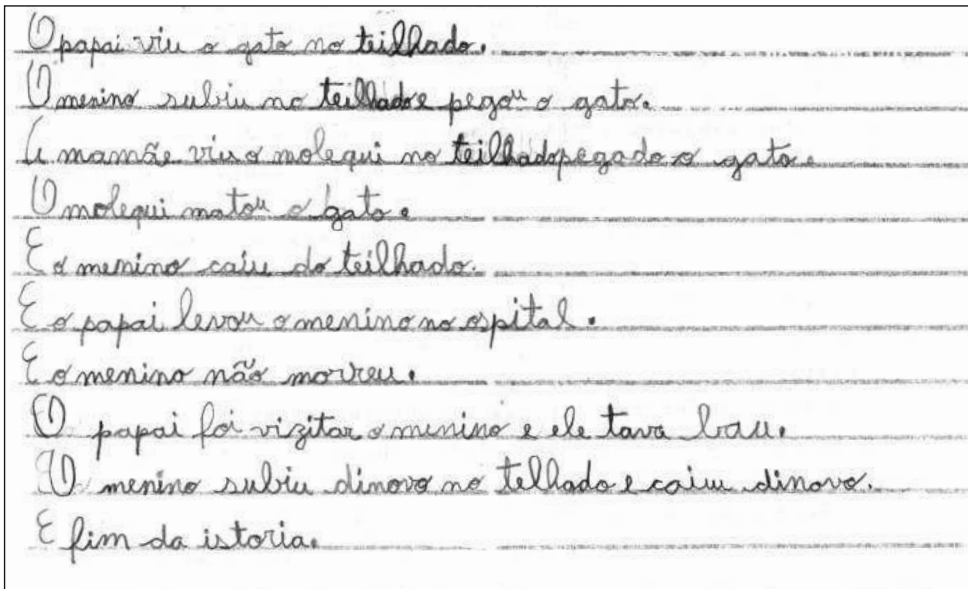 O papai viu o gato no teilhado.
O menino subiu no teilhado e pegou o gato.
A mamãe viu o molequi no teilhado pegado o gato.
O molequi matou o gato.
E o menino caiu do teilhado.
E o papai levou o menino no ospital.
E o menino não morreu.
O papai foi vizitar o minino e ele tava bau.
O menino subiu dinovo no telhado e caiu dinovo.
E fim da istoria.